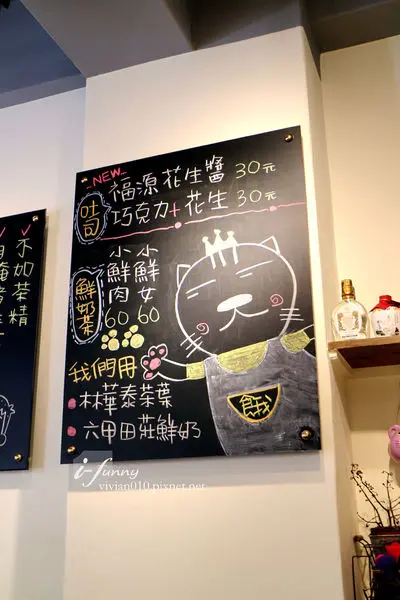 NEW
吐司
福源花生醬 30元
巧克力+花生 30元
鮮奶茶
小鮮肉 60
小鮮女 60
我們用
林華泰茶葉
六甲田莊鮮奶
餓我
不如茶精
i-funny
vivian010.pixnet.net